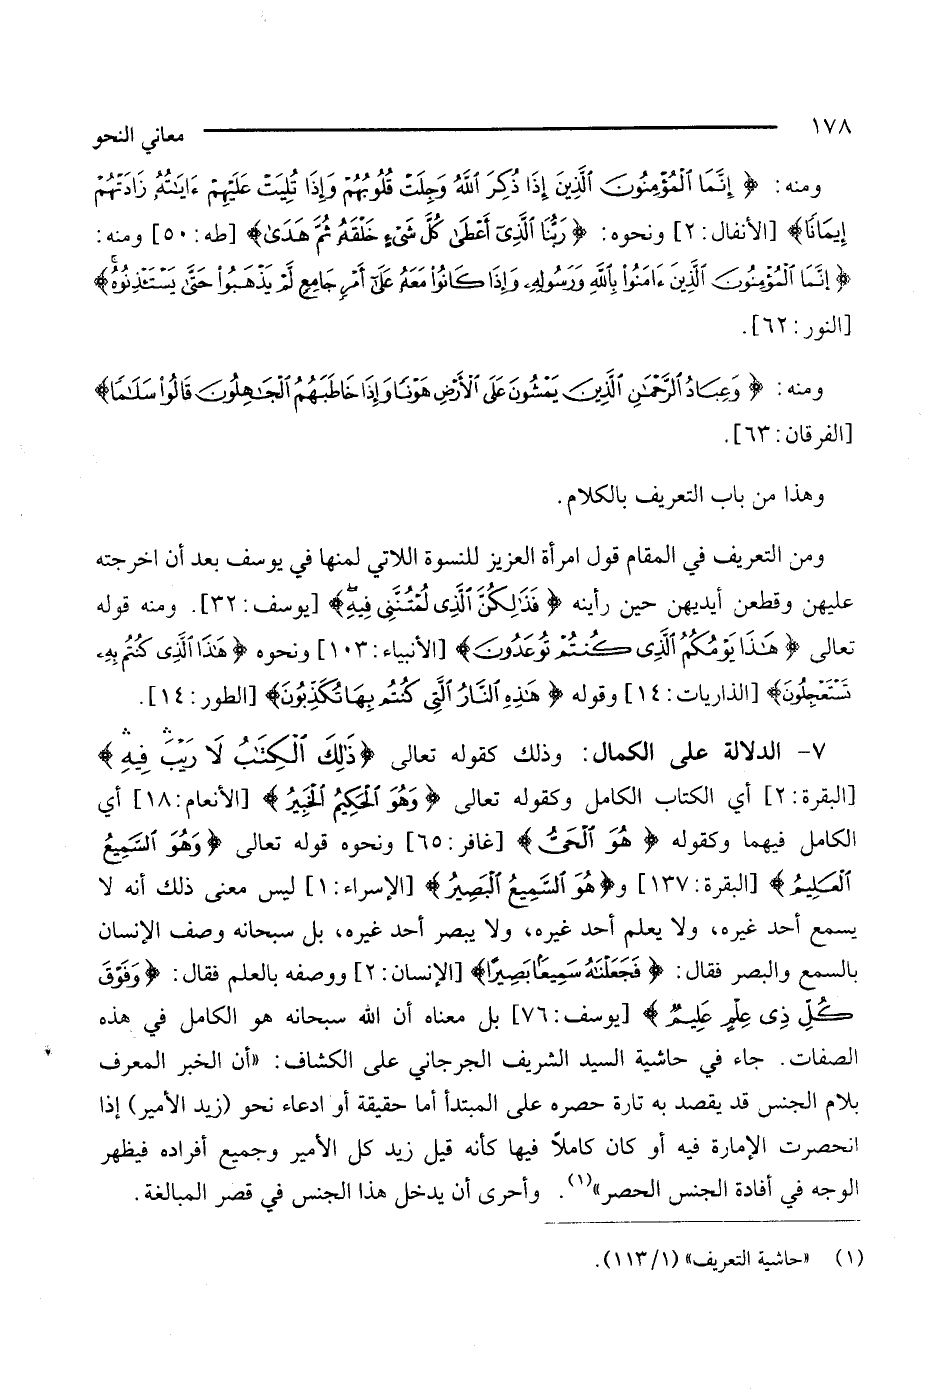 ١٧٨ معاني النحو
ومنه: ﴿ إِنَّمَا ٱلْمُؤْمِنُونَ ٱلَّذِينَ إِذَا ذُكِرَ ٱللَّهُ وَجِلَتْ قُلُوبُهُمْ وَإِذَا تُلِيَتْ عَلَيْهِمْ ءَايَـٰتُهُۥ زَادَتْهُمْ
إِيمَانًا﴾ [الأنفال: ٢] ونحوه: ﴿ رَبُّنَا ٱلَّذِىٓ أَعْطَىٰ كُلَّ شَىْءٍ خَلْقَهُۥ ثُمَّ هَدَىٰ﴾ [طه: ٥٠] ومنه:
﴿ إِنَّمَا ٱلْمُؤْمِنُونَ ٱلَّذِينَ ءَامَنُوا۟ بِٱللَّهِ وَرَسُولِهِۦ وَإِذَا كَانُوا۟ مَعَهُۥ عَلَىٰٓ أَمْرٍ جَامِعٍ لَّمْ يَذْهَبُوا۟ حَتَّىٰ يَسْتَـْٔذِنُوهُ ۚ﴾
[النور: ٦٢].
ومنه: ﴿ وَعِبَادُ ٱلرَّحْمَـٰنِ ٱلَّذِينَ يَمْشُونَ عَلَى ٱلْأَرْضِ هَوْنًا وَإِذَا خَاطَبَهُمُ ٱلْجَـٰهِلُونَ قَالُوا۟ سَلَـٰمًا﴾
[الفرقان: ٦٣].
وهذا من باب التعريف بالكلام.
ومن التعريف في المقام قول امرأة العزيز للنسوة اللاتي لمنها في يوسف بعد أن اخرجته
عليهن وقطعن أيديهن حين رأينه ﴿ فَذَٰلِكُنَّ ٱلَّذِى لُمْتُنَّنِى فِيهِ ۖ﴾ [يوسف: ٣٢]. ومنه قوله
تعالى ﴿ هَـٰذَا يَوْمُكُمُ ٱلَّذِى كُنتُمْ تُوعَدُونَ﴾ [الأنبياء: ١٠٣] ونحوه ﴿ هَـٰذَا ٱلَّذِى كُنتُم بِهِۦ
تَسْتَعْجِلُونَ﴾ [الذاريات: ١٤] وقوله ﴿ هَـٰذِهِ ٱلنَّارُ ٱلَّتِى كُنتُم بِهَا تُكَذِّبُونَ﴾ [الطور: ١٤].
٧- الدلالة على الكمال: وذلك كقوله تعالى ﴿ذَٰلِكَ ٱلْكِتَـٰبُ لَا رَيْبَ ۛ فِيهِ ۛ﴾
[البقرة: ٢] أي الكتاب الكامل وكقوله تعالى ﴿ وَهُوَ ٱلْحَكِيمُ ٱلْخَبِيرُ ﴾ [الأنعام: ١٨] أي
الكامل فيهما وكقوله ﴿ هُوَ ٱلْحَىُّ ﴾ [غافر: ٦٥] ونحوه قوله تعالى ﴿وَهُوَ ٱلسَّمِيعُ
ٱلْعَلِيمُ ﴾ [البقرة: ١٣٧] و﴿هُوَ ٱلسَّمِيعُ ٱلْبَصِيرُ ﴾ [الإسراء: ١] ليس معنى ذلك أنه لا
يسمع أحد غيره، ولا يعلم أحد غيره، ولا يبصر أحد غيره، بل سبحانه وصف الإنسان
بالسمع والبصر فقال: ﴿ فَجَعَلْنَـٰهُ سَمِيعًۢا بَصِيرًا﴾ [الإنسان: ٢] ووصفه بالعلم فقال: ﴿ وَفَوْقَ
كُلِّ ذِى عِلْمٍ عَلِيمٌ ﴾ [يوسف: ٧٦] بل معناه أن الله سبحانه هو الكامل في هذه
الصفات. جاء في حاشية السيد الشريف الجرجاني على الكشاف: «أن الخبر المعرف
بلام الجنس قد يقصد به تارة حصره على المبتدأ أما حقيقة أو ادعاء نحو (زيد الأمير) إذا
انحصرت الإمارة فيه أو كان كاملاً فيها كأنه قيل زيد كل الأمير وجميع أفراده فيظهر
الوجه في أفادة الجنس الحصر»(١). وأحرى أن يدخل هذا الجنس في قصر المبالغة.
(١) «حاشية التعريف» (١/ ١١٣).